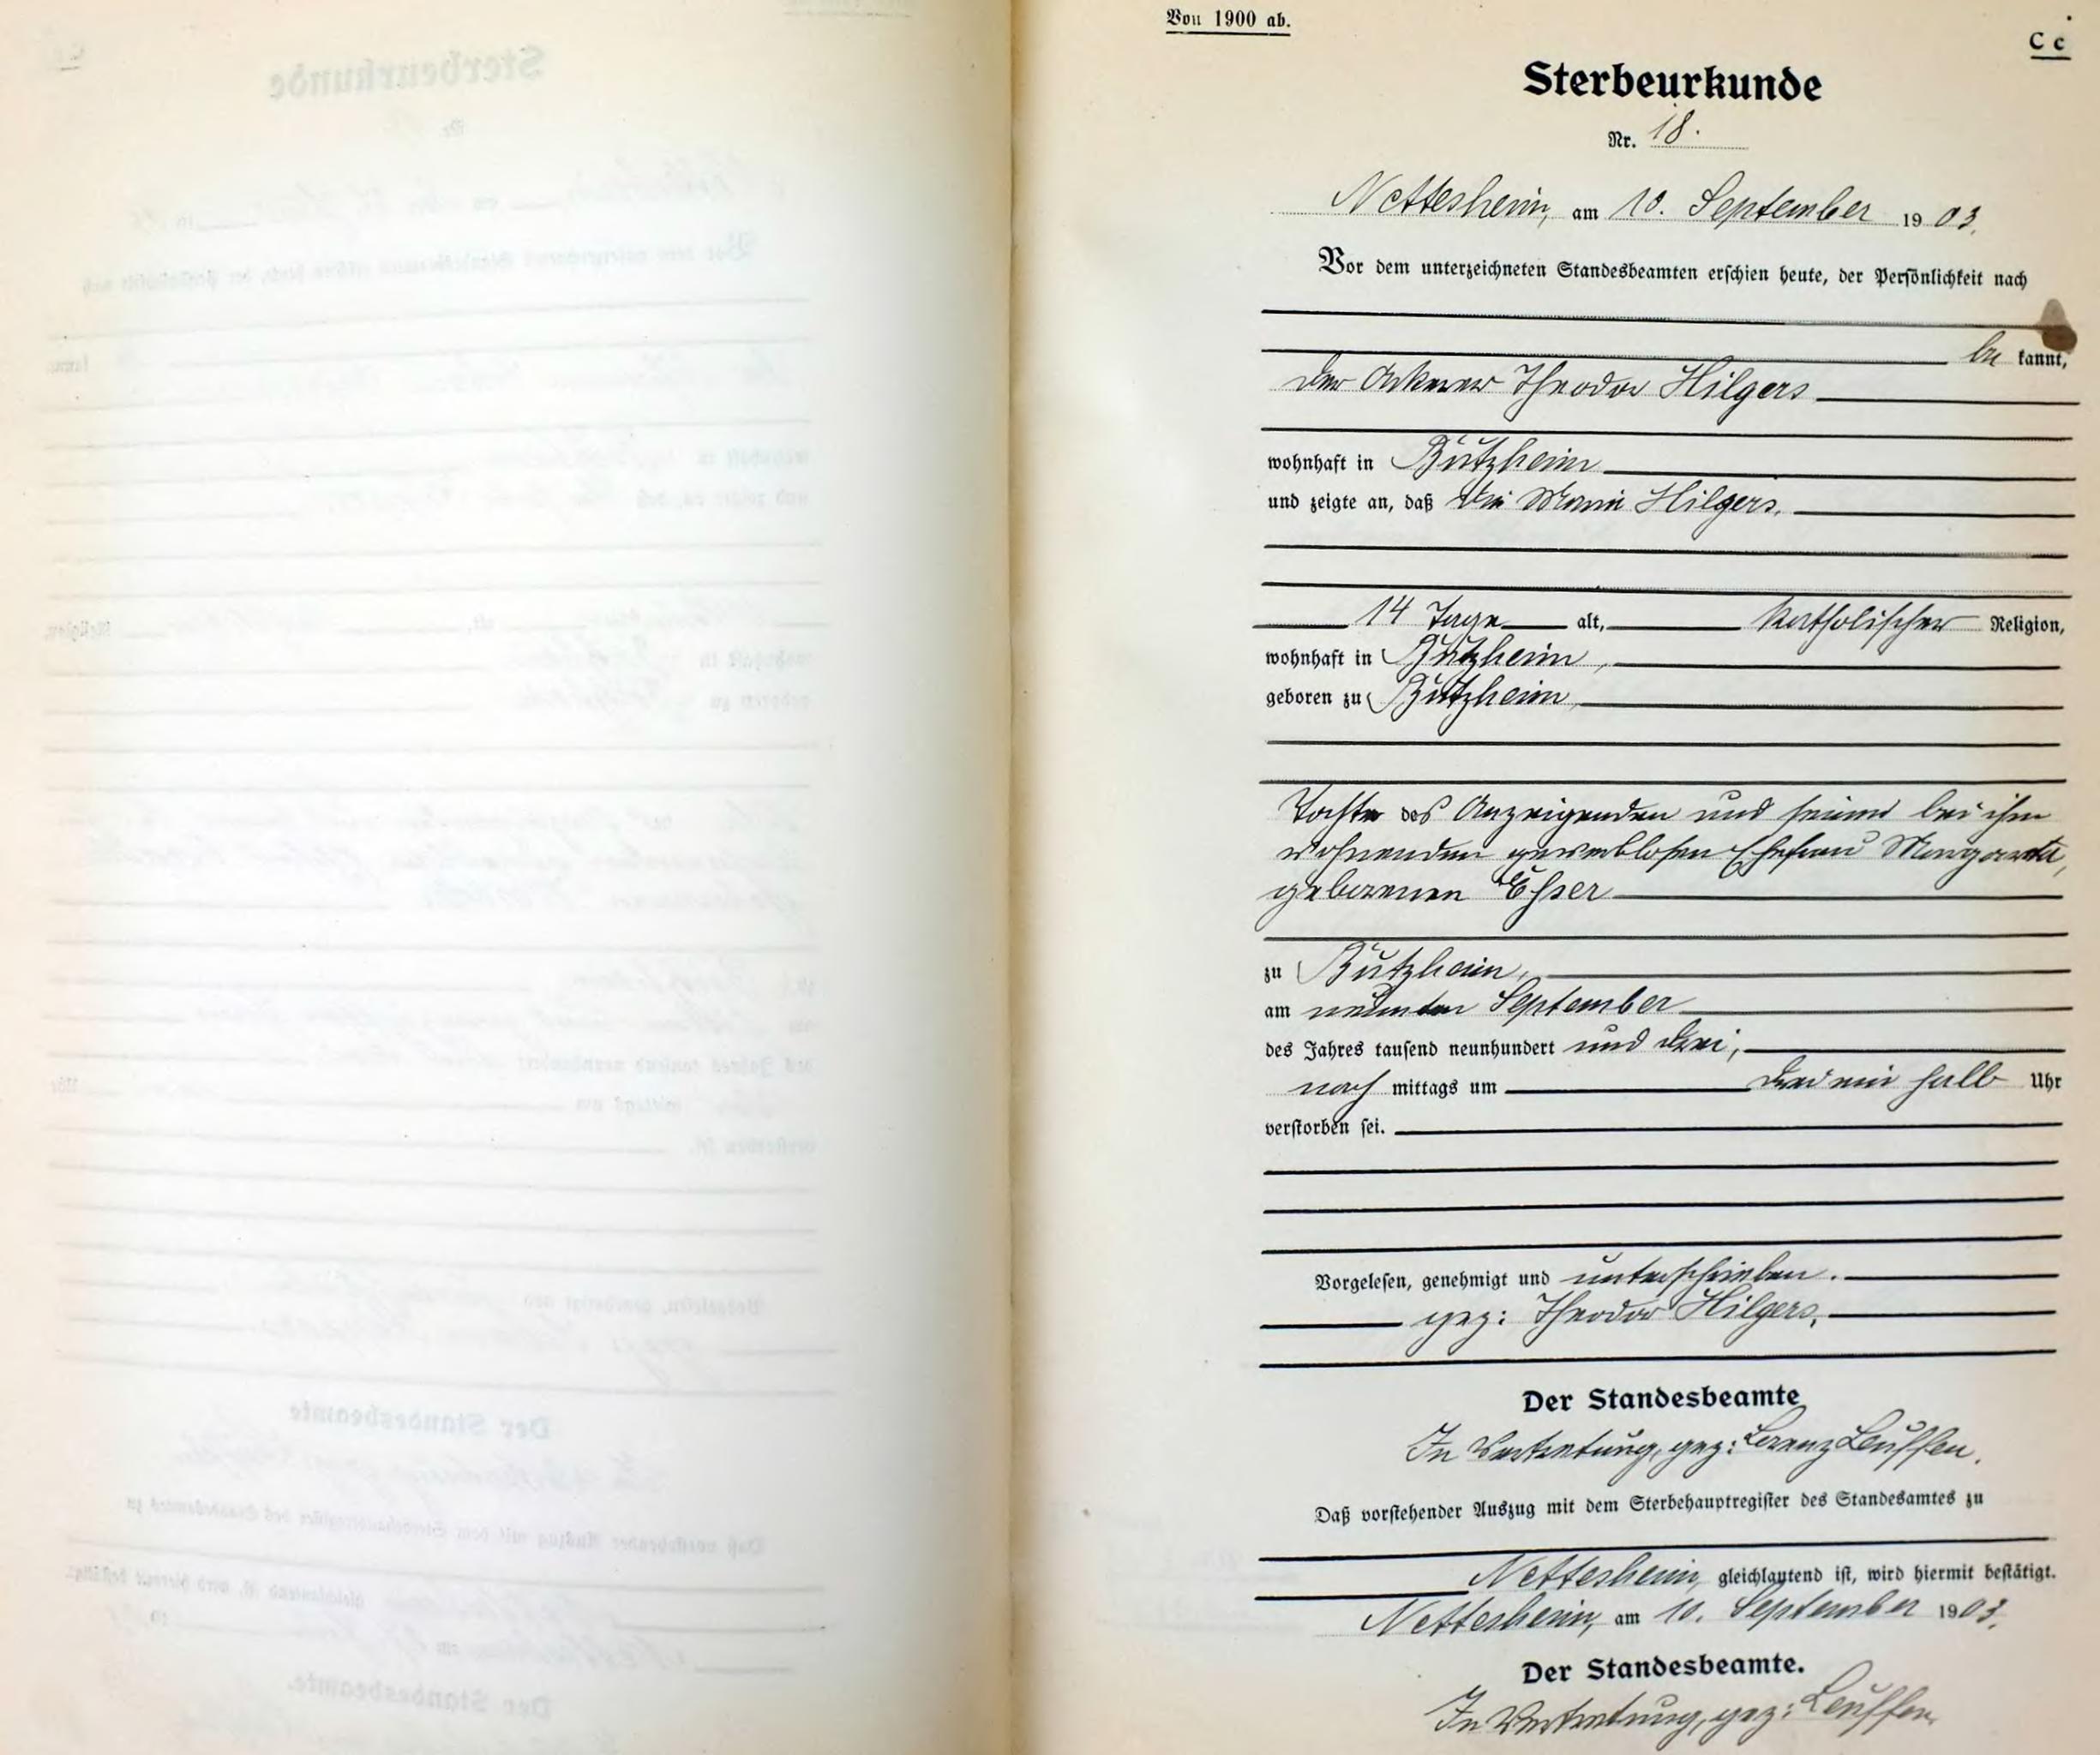 Von 1900 ab.
C c
Sterbeurkunde
Nr. 18.
Nettesheim, am 10. September 1903.
Vor dem unterzeichneten Standesbeamten erschien heute, der Persönlichkeit nach
be kannt,
der Ackerer Theodor Hilgers
wohnhaft in Bützheim
und zeigte an, daß die Maria Hilgers,
14 Tage alt, katholischer Religion,
wohnhaft in Bützheim,
geboren zu Bützheim,
Tochter des Anzeigenden und seiner bei ihm
wohnenden gewerblosen Ehefrau Margareta,
geborenen Esser
zu Bützheim,
am neunten September
des Jahres tausend neunhundert und drei,
nach mittags um drei ein halb Uhr
verstorben sei.
Vorgelesen, genehmigt und unterschrieben.
gez: Theodor Hilgers,
Der Standesbeamte
In Vertretung, gez: Lorenz Leuffen.
Daß vorstehender Auszug mit dem Sterbehauptregister des Standesamtes zu
Nettesheim, gleichlautend ist, wird hiermit bestätigt.
Nettesheim, am 10. September 1903.
Der Standesbeamte.
In Vertretung, gez: Leuffen.